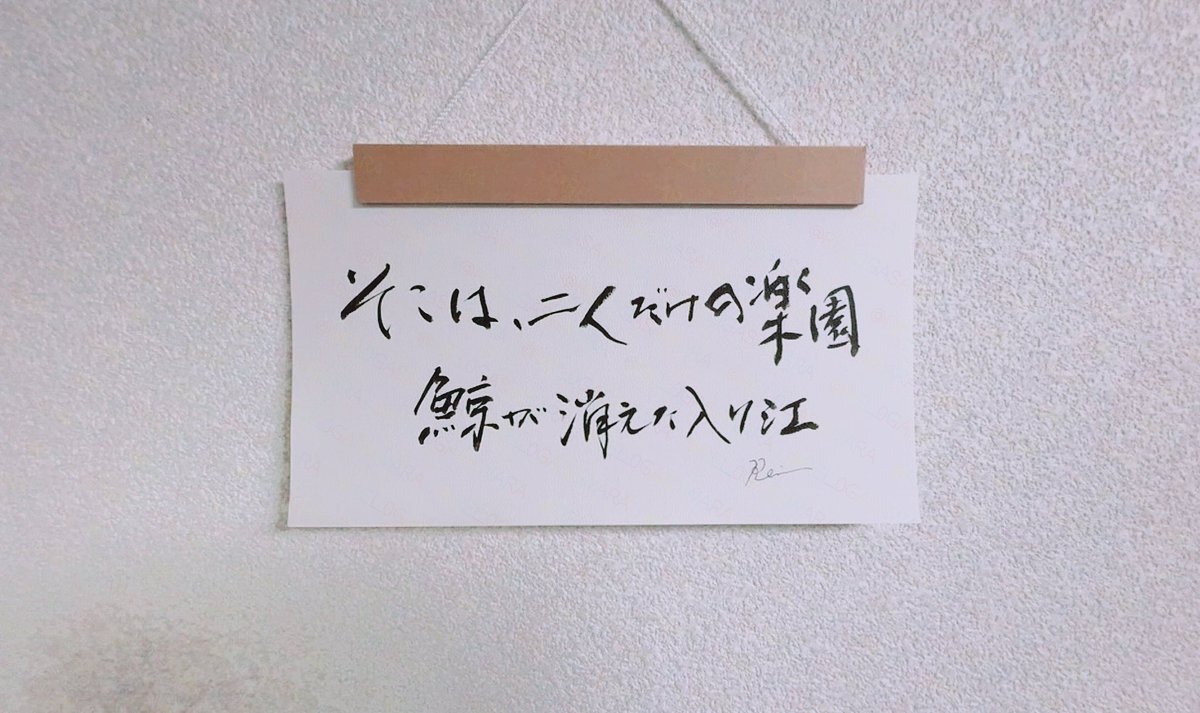 そこは、二人だけの楽園
鯨が消えた入り江
Rei